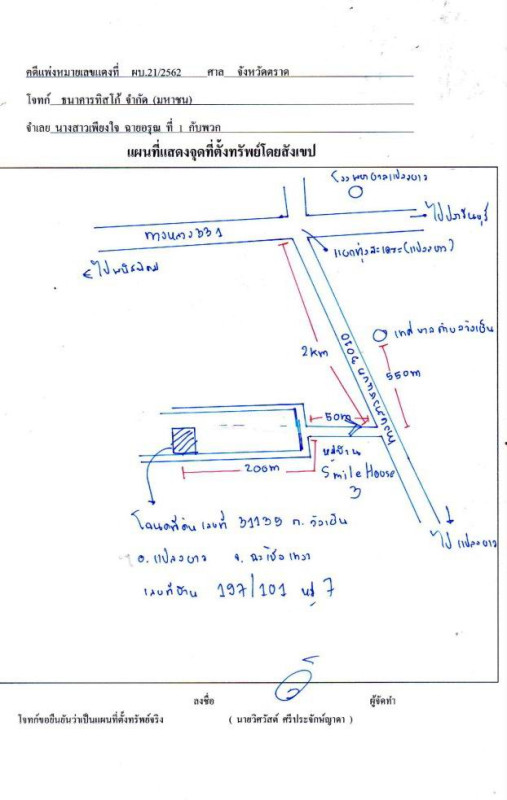 คดีแพ่งหมายเลขแดงที่ ผบ.21/2562 ศาล จังหวัดตราด
โจทก์ ธนาคารทิสโก้ จำกัด (มหาชน)
จำเลย นางสาวเพียงใจ ฉายอรุณ ที่ 1 กับพวก
แผนที่แสดงจุดที่ตั้งทรัพย์โดยสังเขป
โรงพยาบาลแปลงยาว
ไปปราจีนบุรี
ทางหลวง 331
แยกทุ่งสะเดา (แปลงยาว)
ไปพนัสนิคม
เทศบาลตำบลวังเย็น
2km
550m
50m
หมู่บ้าน
Smile House
3
200m
ไปแปลงยาว
โฉนดที่ดิน เลขที่ 31139 ต. วังเย็น
อ. แปลงยาว จ. ฉะเชิงเทรา
เลขที่บ้าน 197/101 หมู่ 7
ลงชื่อ ผู้จัดทำ
โจทก์ขอยืนยันว่าเป็นแผนที่ตั้งทรัพย์จริง ( นายวิศวัสต์ ศรีประจักษ์ญาดา )